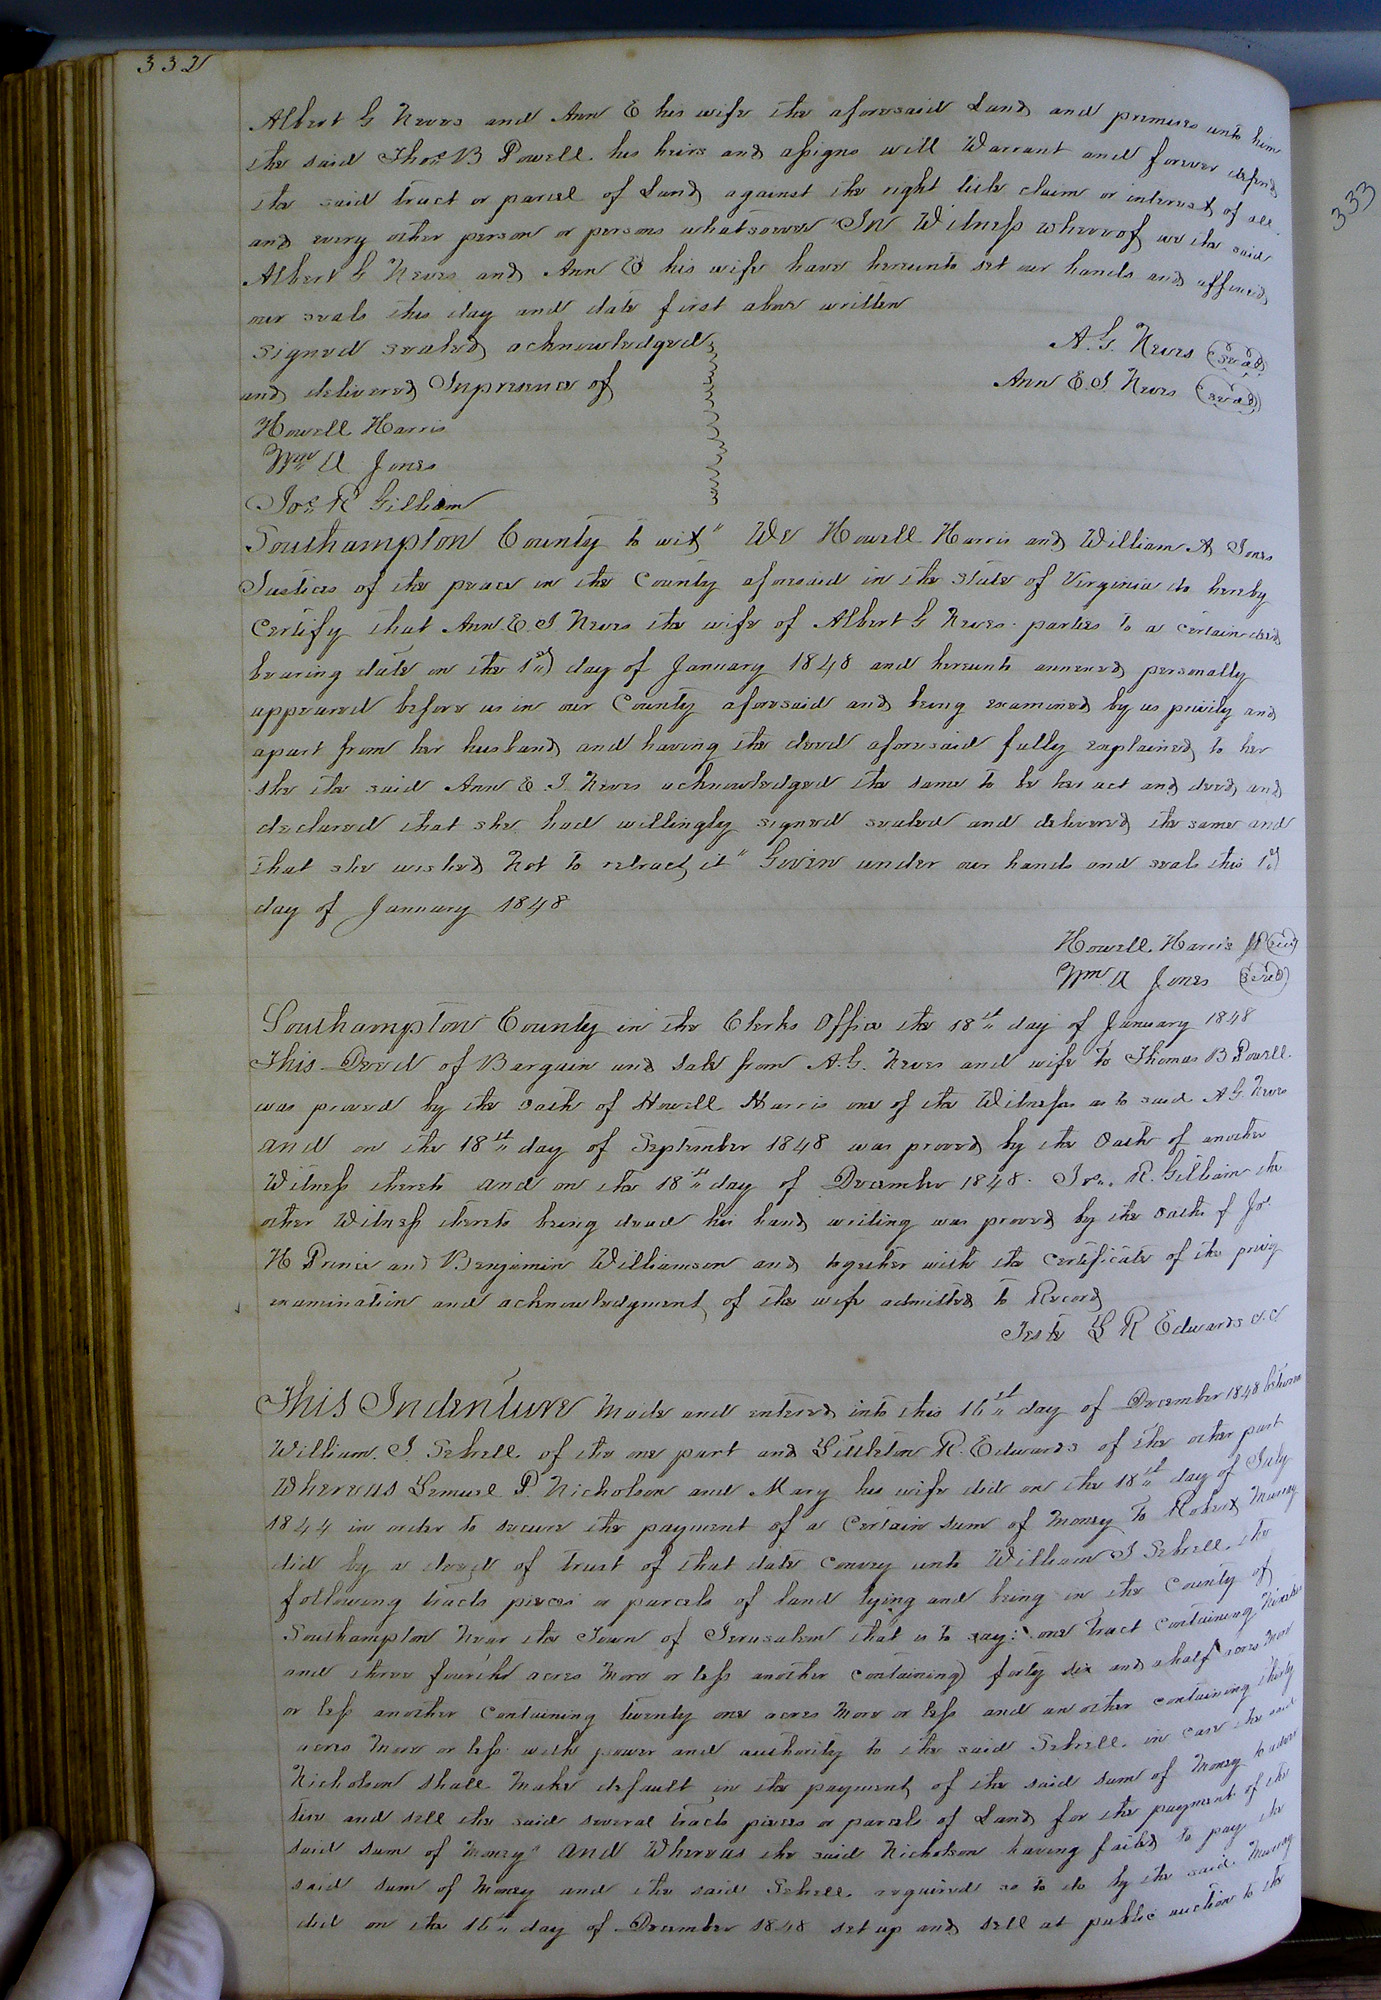 332
Albert G Neves and Ann E his wife the aforesaid Land and premises unto him
the said Thos B Powell his heirs and assigns will Warrant and forever defend
the said tract or parcel of Land against the right title claim or interest of all
and every other person or persons whatsoever In Witness whereof we the said
Albert G Neves and Ann E his wife have hereunto set our hands and affixed
our seals this day and date first above written
Signed sealed acknowledged A. G. Neves (seal)
and delivered In presence of Ann E. J. Neves (seal)
Howell Harris
Wm A Jones
Jos R Gilliam
Southampton County to wit" We Howell Harris and William A Jones
Justices of the peace in the County aforesaid in the State of Virginia do hereby
Certify that Ann E. J Neves the wife of Albert G Neves parties to a certain deed
bearing date on the 1st day of January 1848 and hereunto annexed personally
appeared before us in our County aforesaid and being examined by us privily and
apart from her husband and having the deed aforesaid fully explained to her
she the said Ann E. J. Neves acknowledged the same to be her act and deed and
declared that she had willingly signed sealed and delivered the same and
that she wished Not to retract it" Given under our hands and seals this 1st
day of January 1848
Howell Harris JP (seal)
Wm A Jones (seal)
Southampton County in the Clerks Office the 18th day of January 1848
This Deed of Bargain and Sale from A. G. Neves and wife to Thomas B Powell
was proved by the oath of Howell Harris one of the Witnesses as to said A G Neves
and on the 18th day of September 1848 was proved by the Oath of another
Witness thereto and on the 18th day of December 1848. Jos. R. Gilliam the
other Witness thereto being dead his hand writing was proved by the oaths of Jos.
H Prince and Benjamin Williamson and together with the Certificate of the privy
examination and acknowledgment of the wife admitted to Record
Teste L R Edwards c.c
This Indenture Made and entered into this 16th day of December 1848 between
William. J. Sebrell of the one part and Littleton R. Edwards of the other part
Whereas Lemuel P. Nicholson and Mary his wife did on the 18th day of July
1844 in order to secure the payment of a Certain sum of Money to Robert Murray
did by a deed of trust of that date convey unto William J Sebrell the
following tracts pieces or parcels of land lying and being in the County of
Southampton Near the Town of Jerusalem that is to say: one tract Containing Nineteen
and three fourths acres More or less another containing forty six and a half acres More
or less another Containing twenty one acres More or less and another containing thirty
acres More or less with power and authority to the said Sebrell in case the said
Nicholson shall Make default in the payment of the said sum of Money to adver
tise and sell the said several tracts pieces or parcels of Land for the payment of the
said sum of Money" And Whereas the said Nicholson having failed to pay the
said sum of Money and the said Sebrell required so to do by the said Murray
did on the 16th day of December 1848 set up and sell at public auction to the
333